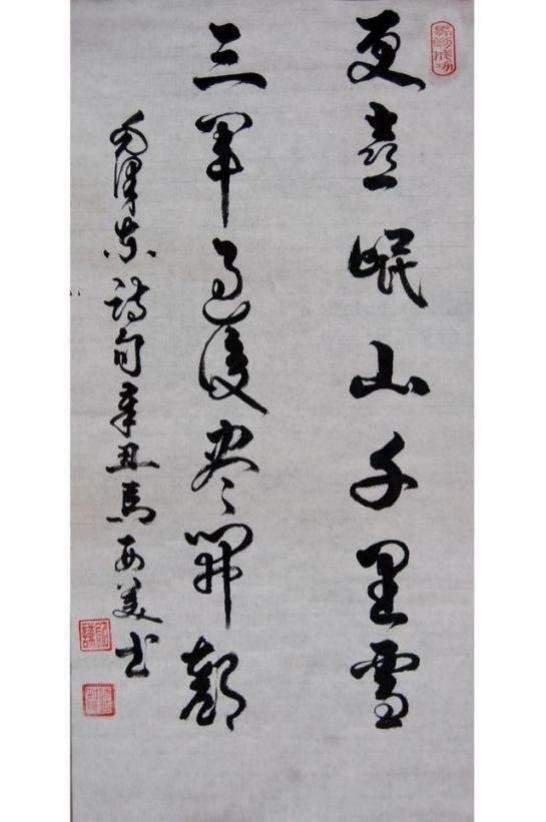 更喜岷山千里雪
三军过后尽开颜
毛泽东诗句辛丑马西美书